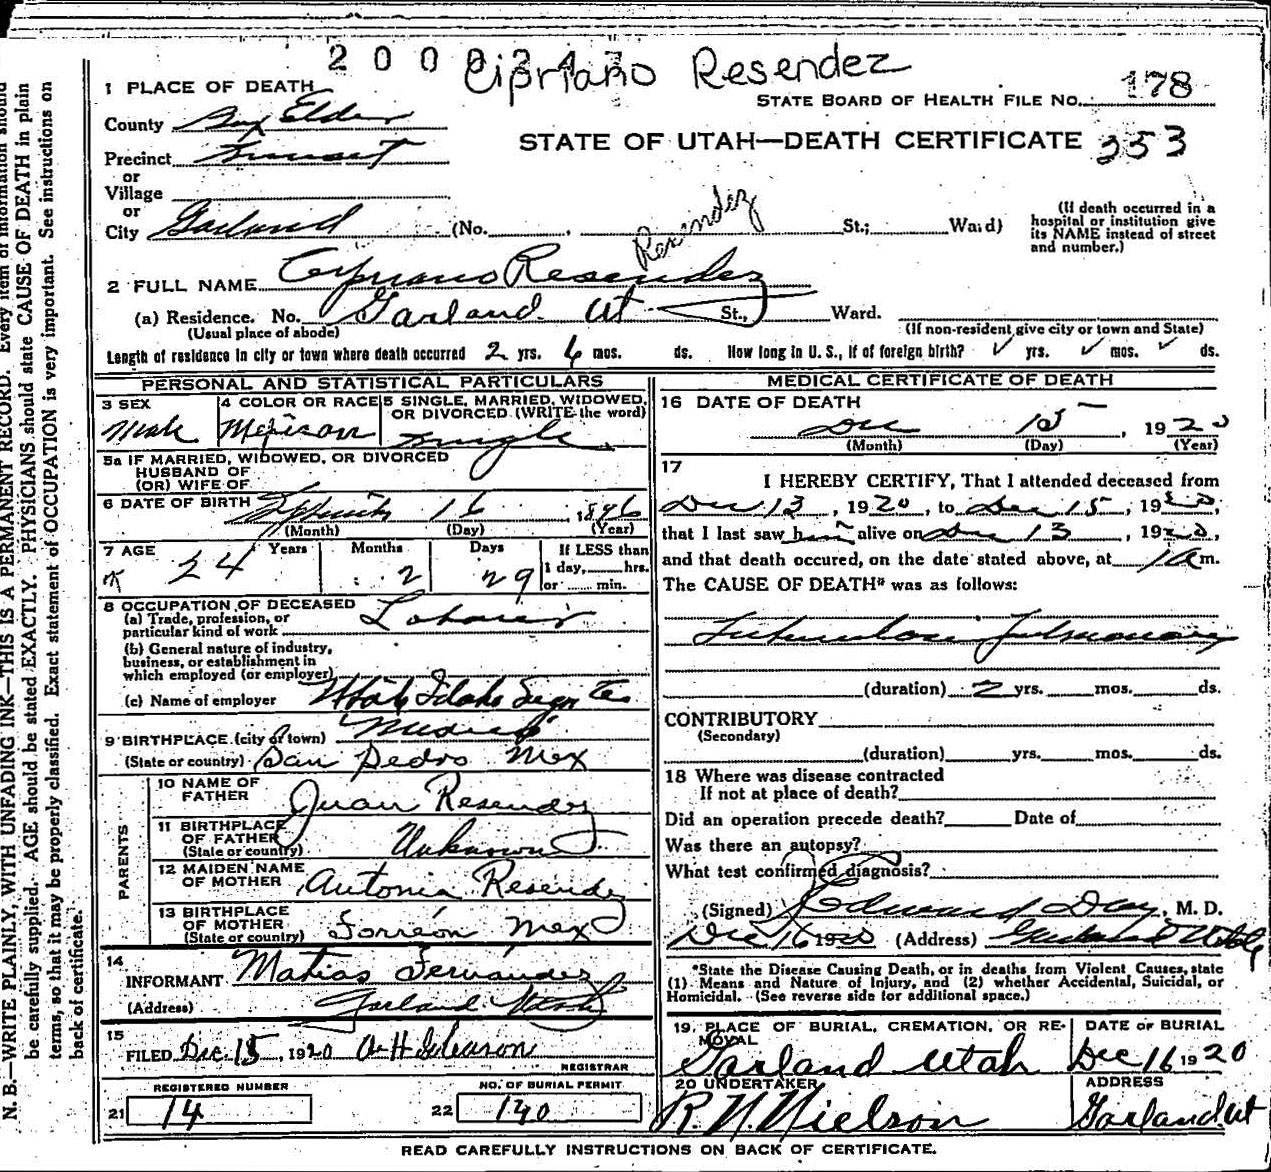 200
Cipriano Resendez
1 PLACE OF DEATH
STATE BOARD OF HEALTH FILE No. 178
County Box Elder
STATE OF UTAH—DEATH CERTIFICATE 353
Precinct
or
Village
or
City Garland (No. , St.; Ward)
Resendez
(If death occurred in a
hospital or institution give
its NAME instead of street
and number.)
2 FULL NAME Cipriano Resendez
(a) Residence. No. Garland Ut St., Ward.
(Usual place of abode)
(If non-resident give city or town and State)
Length of residence in city or town where death occurred 2 yrs. 6 mos. ds. How long in U. S., if of foreign birth? yrs. mos. ds.
PERSONAL AND STATISTICAL PARTICULARS
3 SEX Male
4 COLOR OR RACE Mexican
5 SINGLE, MARRIED, WIDOWED,
OR DIVORCED (WRITE the word)
Single
5a IF MARRIED, WIDOWED, OR DIVORCED
HUSBAND OF
(OR) WIFE OF
6 DATE OF BIRTH 16, 1896
(Month) (Day) (Year)
7 AGE Years Months Days If LESS than
1 day, hrs.
or min.
24 2 29
8 OCCUPATION OF DECEASED
(a) Trade, profession, or
particular kind of work Laborer
(b) General nature of industry,
business, or establishment in
which employed (or employer)
(c) Name of employer Utah Idaho Sugar Co
9 BIRTHPLACE (city or town) Mexico
(State or country) San Pedro Mex
PARENTS
10 NAME OF
FATHER Juan Resendez
11 BIRTHPLACE
OF FATHER
(State or country) Unknown
12 MAIDEN NAME
OF MOTHER Antonia Resendez
13 BIRTHPLACE
OF MOTHER
(State or country) Torreón Mex
14
INFORMANT Matias Fernandez
(Address) Garland Utah
15
FILED Dec. 15, 1920 A H Gleason
REGISTRAR
REGISTERED NUMBER
21 14
NO. OF BURIAL PERMIT
22 140
MEDICAL CERTIFICATE OF DEATH
16 DATE OF DEATH
Dec 15, 1920
(Month) (Day) (Year)
17
I HEREBY CERTIFY, That I attended deceased from
Dec 13, 1920, to Dec 15, 1920,
that I last saw him alive on Dec 13, 1920,
and that death occured, on the date stated above, at 1 a m.
The CAUSE OF DEATH* was as follows:
Tuberculosis Pulmonary
(duration) 2 yrs. mos. ds.
CONTRIBUTORY
(Secondary)
(duration) yrs. mos. ds.
18 Where was disease contracted
If not at place of death?
Did an operation precede death? Date of
Was there an autopsy?
What test confirmed diagnosis?
(Signed) Edward Day, M. D.
Dec 16 1920 (Address) Garland Utah
*State the Disease Causing Death, or in deaths from Violent Causes, state
(1) Means and Nature of Injury, and (2) whether Accidental, Suicidal, or
Homicidal. (See reverse side for additional space.)
19. PLACE OF BURIAL, CREMATION, OR RE-
MOVAL
Garland Utah
DATE OF BURIAL
Dec 16 1920
20 UNDERTAKER
R. N. Nielson
ADDRESS
Garland Ut
READ CAREFULLY INSTRUCTIONS ON BACK OF CERTIFICATE.
N. B.—WRITE PLAINLY, WITH UNFADING INK—THIS IS A PERMANENT RECORD. Every item of information should
be carefully supplied. AGE should be stated EXACTLY. PHYSICIANS should state CAUSE OF DEATH in plain
terms, so that it may be properly classified. Exact statement of OCCUPATION is very important. See instructions on
back of certificate.